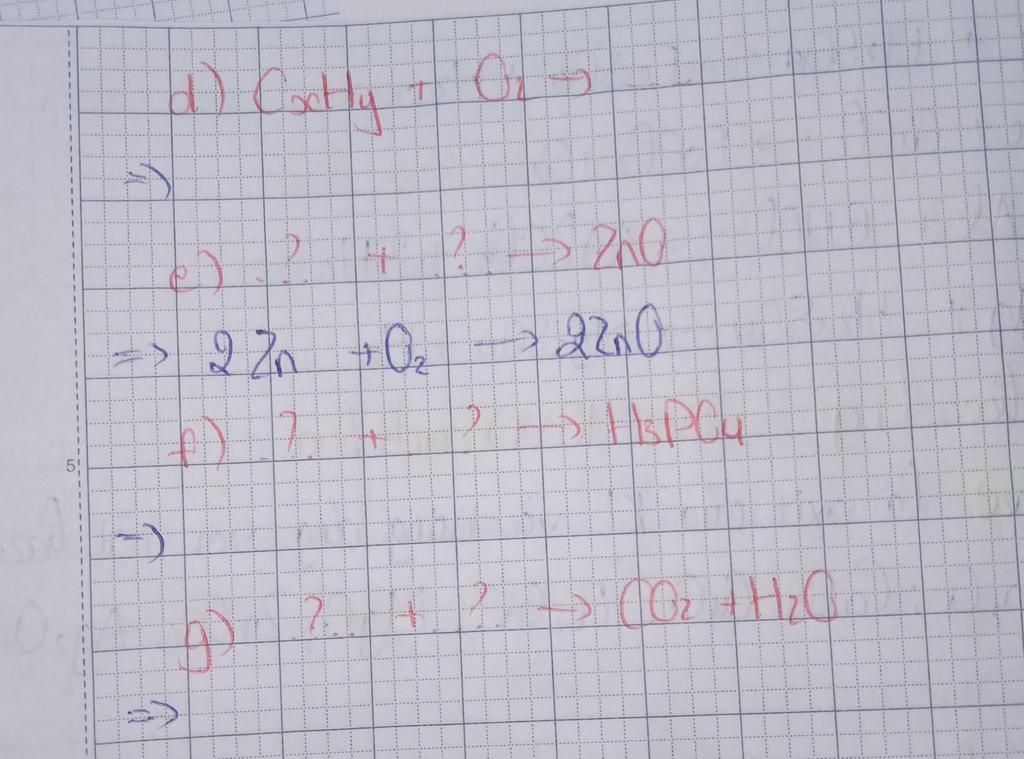 d) CxHy + O₂ →
=>
e) ..?.. + ..?.. → ZnO
=> 2 Zn + O₂ → 2ZnO
f) ..?.. + ..?.. → H₃PO₄
=>
5
g) ..?.. + ..?.. → CO₂ + H₂O
=>